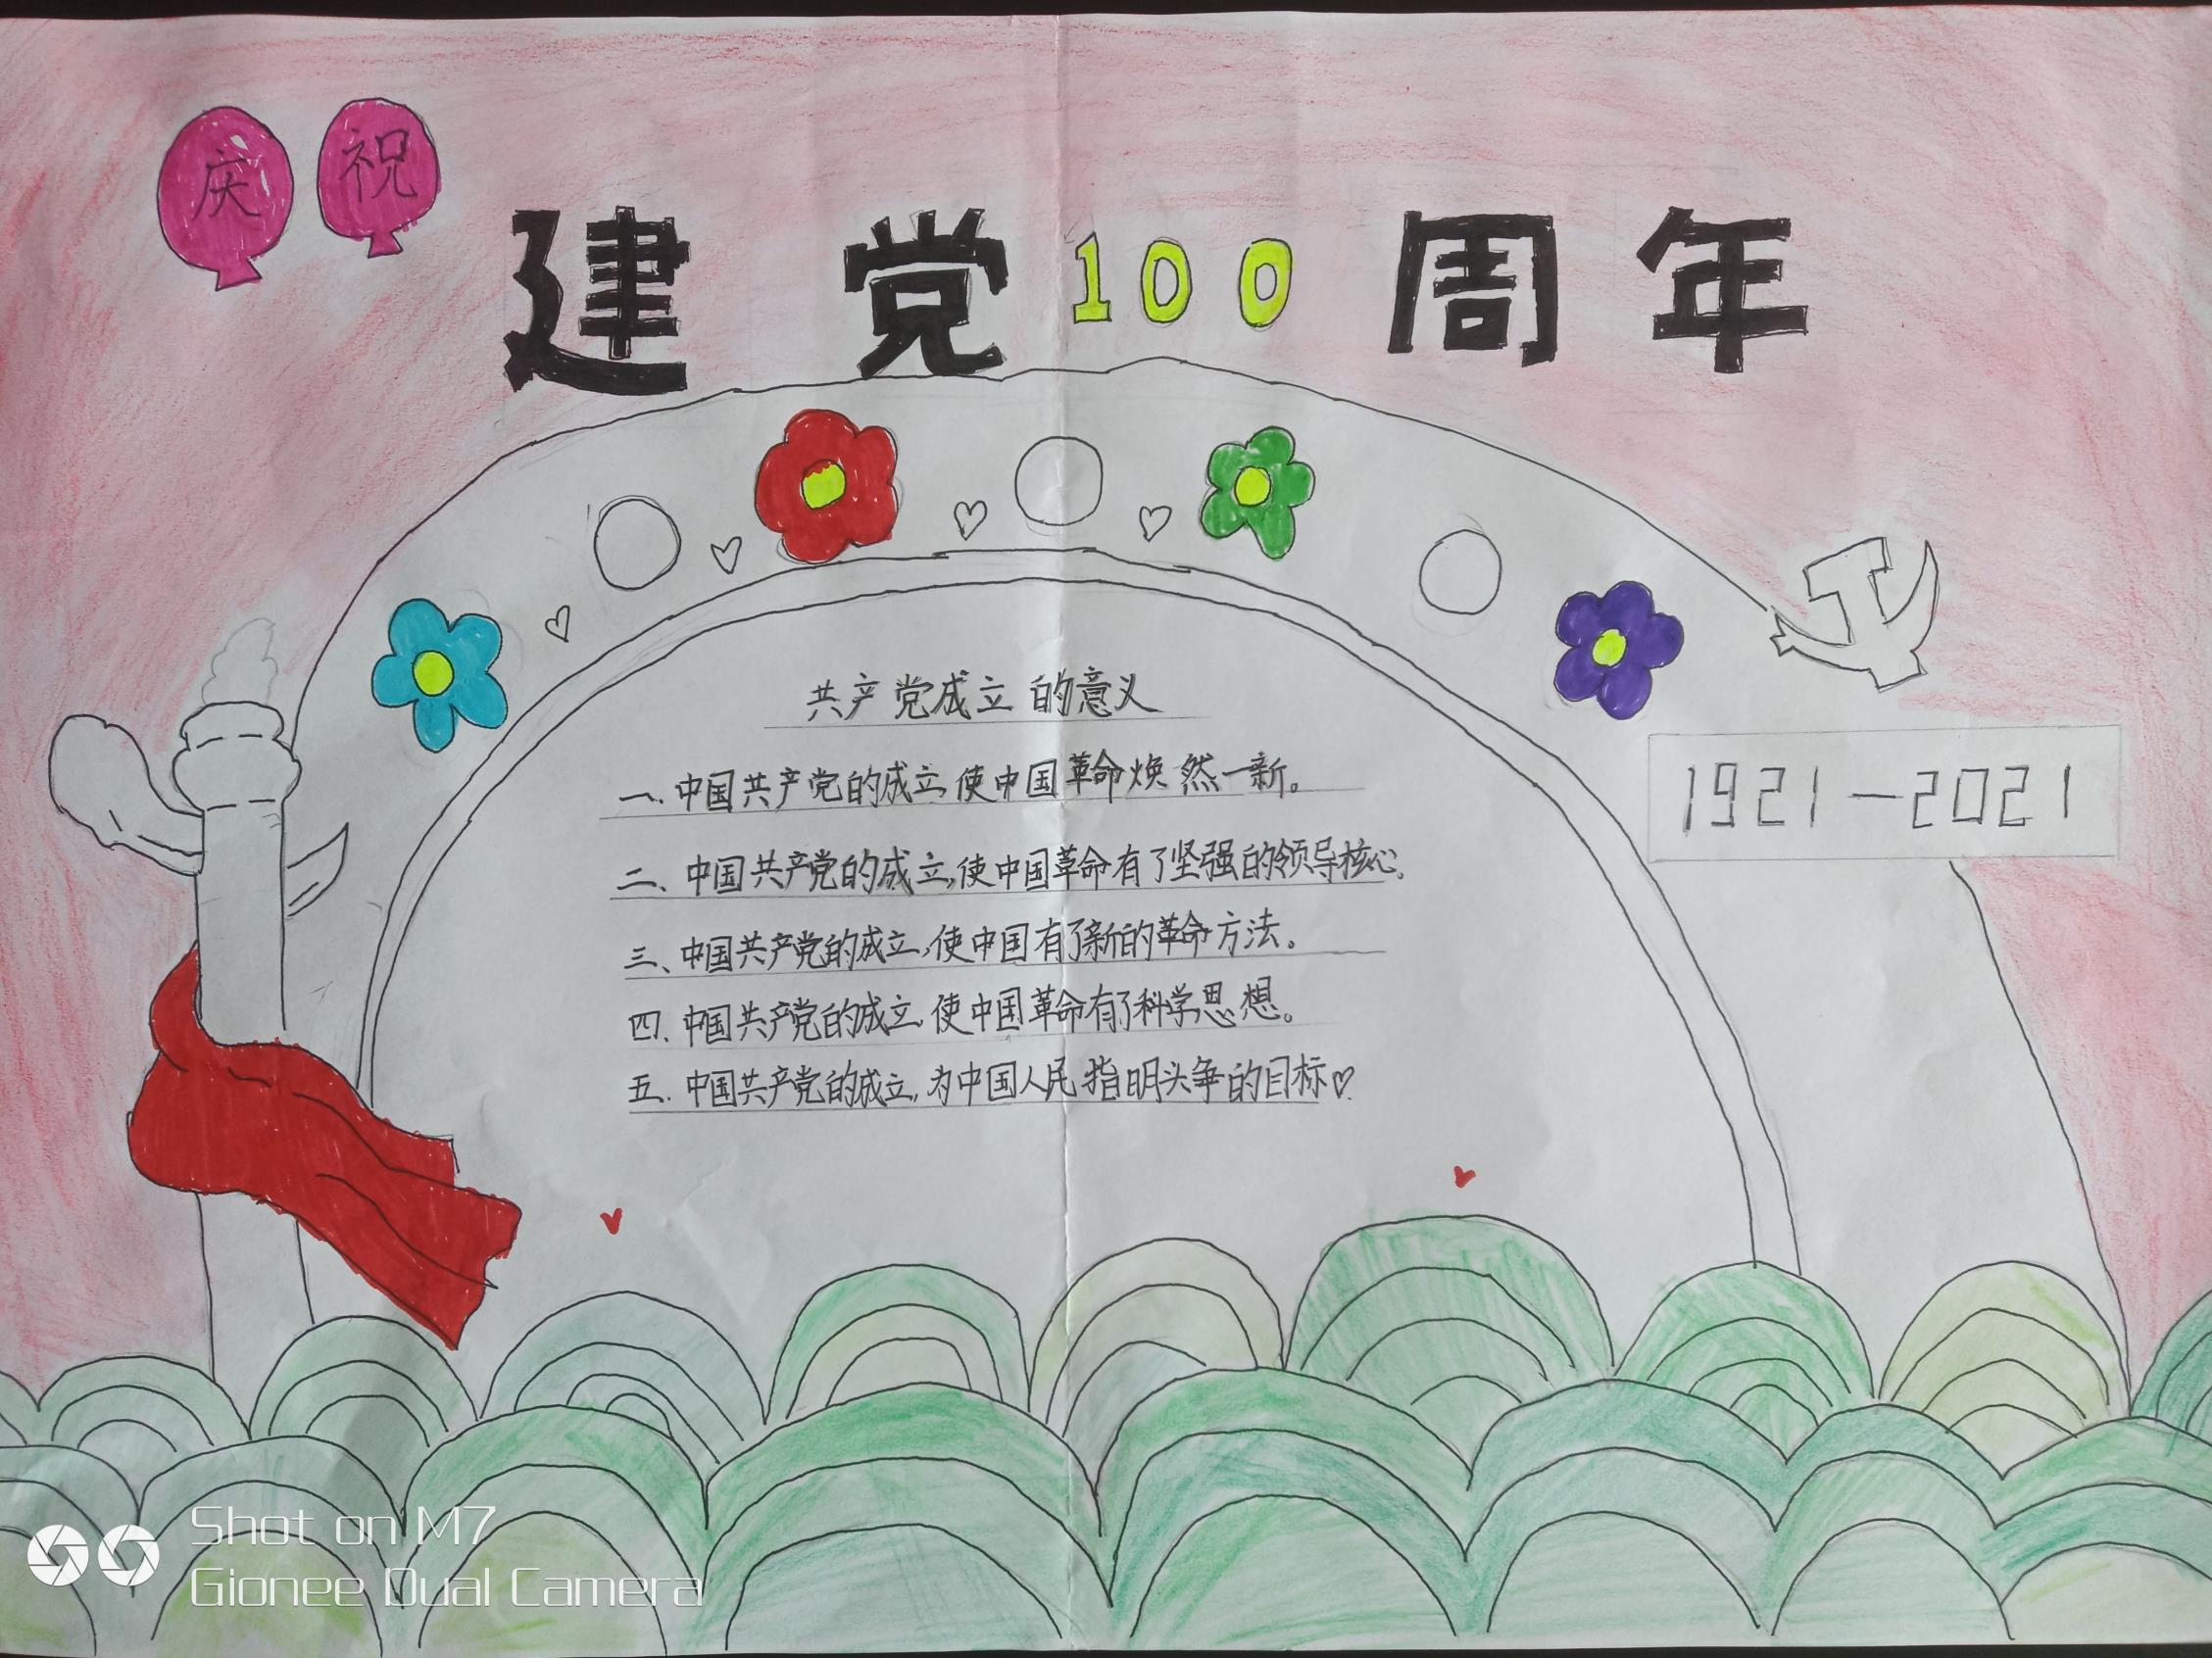 庆 祝
建党100周年
共产党成立的意义
一.中国共产党的成立,使中国革命焕然一新。
二、中国共产党的成立,使中国革命有了坚强的领导核心。
三、中国共产党的成立,使中国有了新的革命方法。
四.中国共产党的成立,使中国革命有了科学思想。
五.中国共产党的成立,为中国人民指明头争的目标♡.
1921—2021
Shot on M7
Gionee Dual Camera